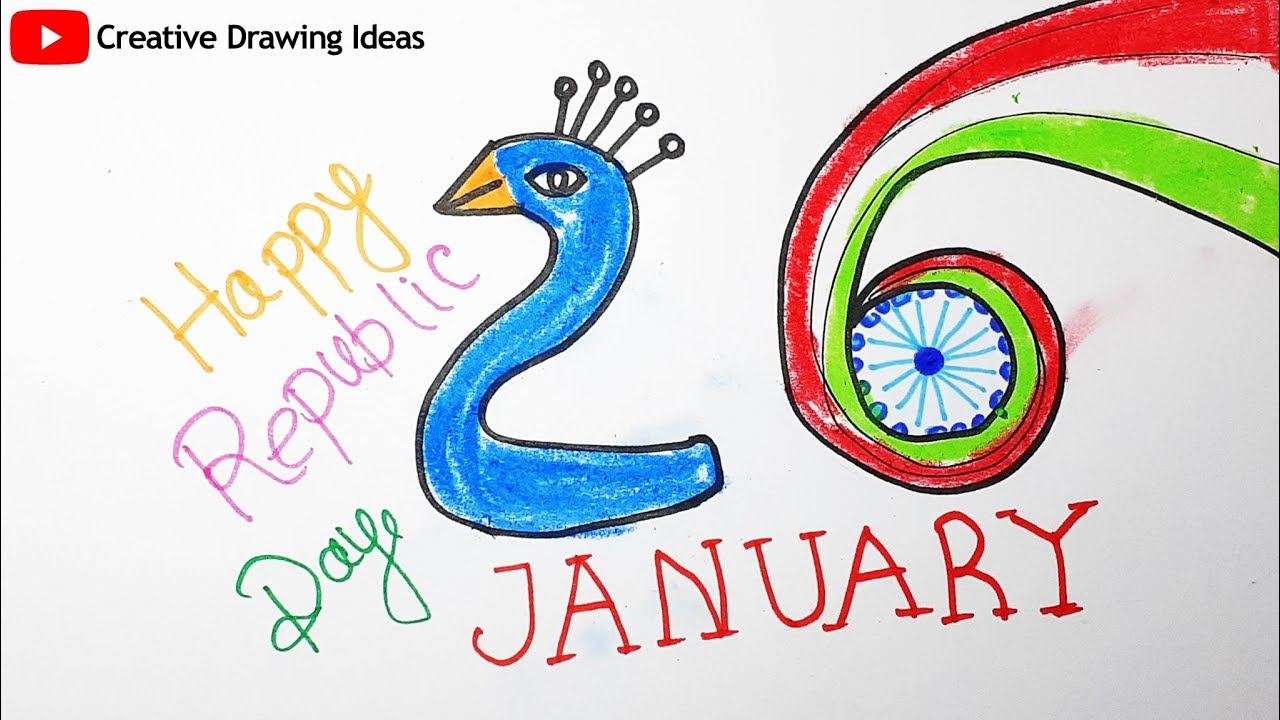 Creative Drawing Ideas
Happy
Republic
Day
26
JANUARY